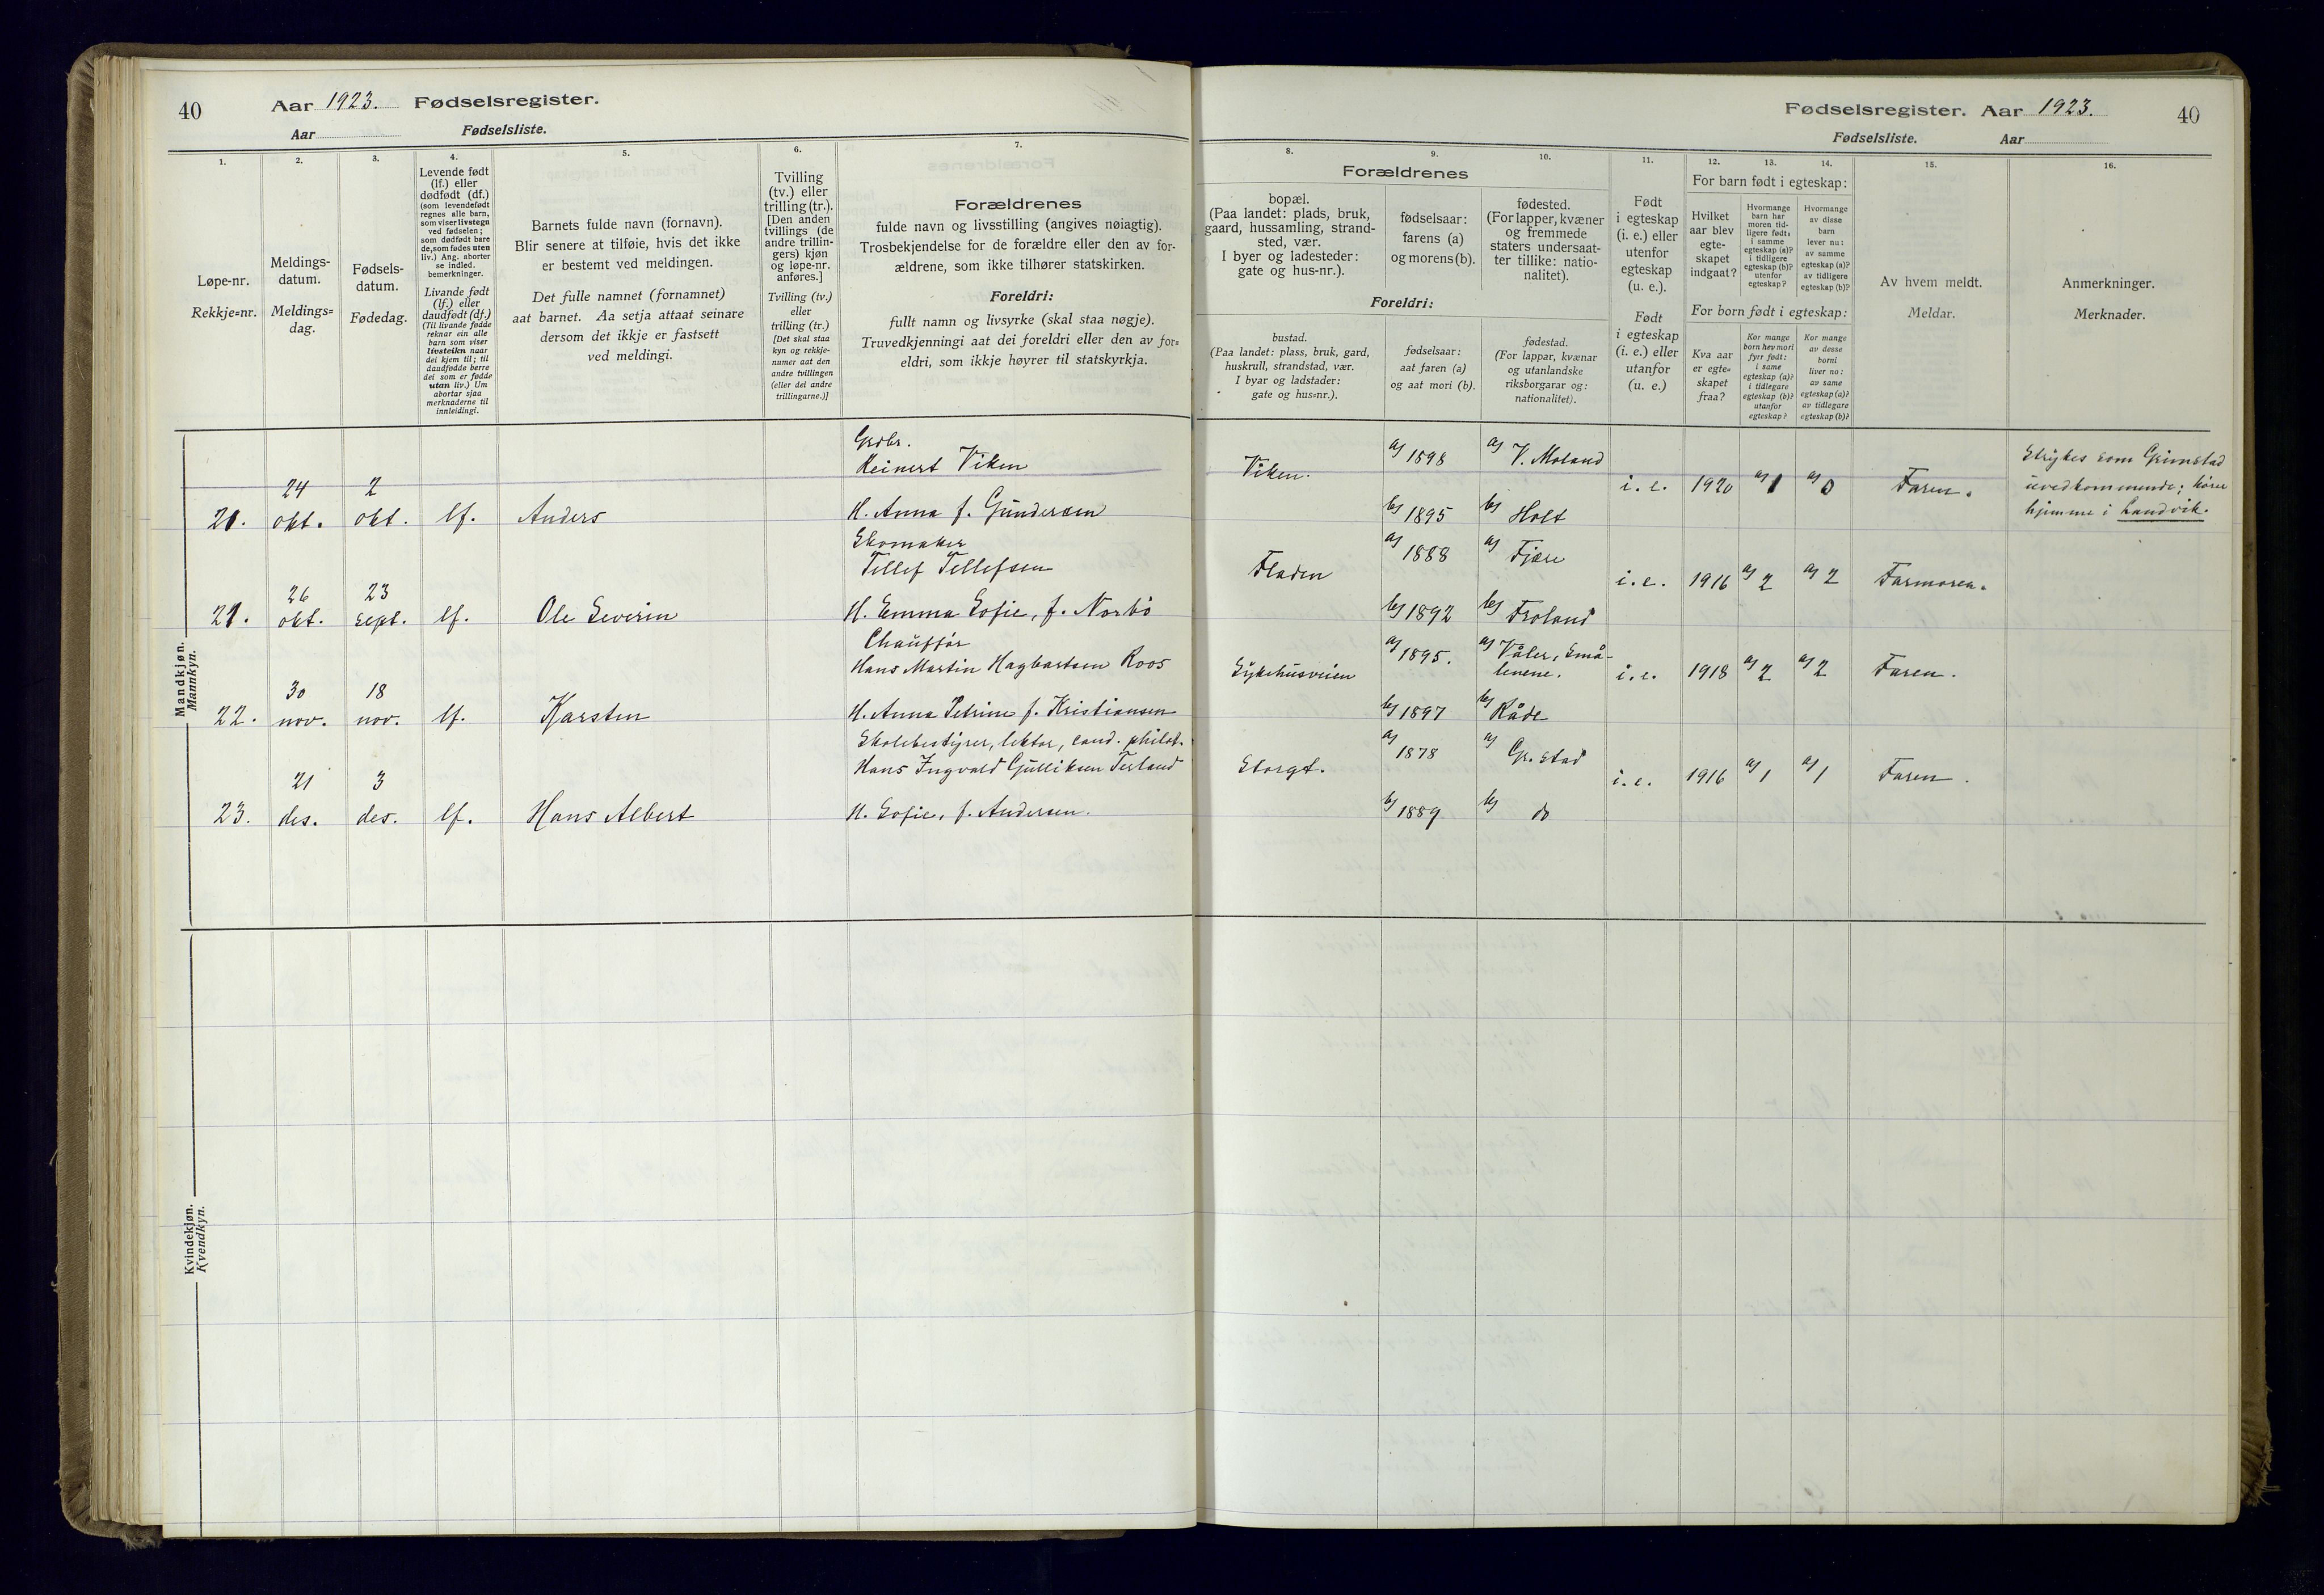 40
Aar 1923. Fødselsregister.
Aar Fødselsliste.
1.
Løpe-nr.
Rekkje=nr.
2.
Meldings-
datum.
Meldings=
dag.
3.
Fødsels-
datum.
Fødedag.
4.
Levende født
(lf.) eller
dødfødt (df.)
(som levendefødt
regnes alle barn,
som viser livstegn
ved fødselen;
som dødfødt bare
de, som fødes uten
liv.) Ang. aborter
se indled.
bemerkninger.
Livande født
(lf.) eller
daudfødt (df.)
(Til livande fødde
reknar ein alle
barn som viser
livsteikn naar
dei kjem til; til
daudfødde berre
dei som er fødde
utan liv.) Um
abortar sjaa
merknaderne til
innleidingi.
5.
Barnets fulde navn (fornavn).
Blir senere at tilføie, hvis det ikke
er bestemt ved meldingen.
Det fulle namnet (fornamnet)
aat barnet. Aa setja attaat seinare
dersom det ikkje er fastsett
ved meldingi.
6.
Tvilling
(tv.) eller
trilling (tr.).
[Den anden
tvillings (de
andre trillin-
gers) kjøn
og løpe-nr.
anføres.]
Tvilling (tv.)
eller
trilling (tr.)
[Det skal staa
kyn og rekkje-
numer aat den
andre tvillingen
(eller dei andre
trillingarne.)]
7.
Forældrenes
fulde navn og livsstilling (angives nøiagtig).
Trosbekjendelse for de forældre eller den av for-
ældrene, som ikke tilhører statskirken.
Foreldri:
fullt namn og livsyrke (skal staa nøgje).
Truvedkjenningi aat dei foreldri eller den av for=
eldri, som ikkje høyrer til statskyrkja.
Mandkjøn.
Mannkyn.
Grdbr.
Reinert Viken
24 2
21. okt. okt. lf. Anders H. Anna f. Gundersen
Skomaker
Tellef Tellefsen
26 23
21. okt. sept. lf. Ole Severin H. Emma Sofie, f. Norbö
Chauffør
Hans Martin Hagbartsen Roos
30 18
22. nov. nov. lf. Karsten H. Anna Petrine f. Kristiansen
Skolebestyrer, lektor, cand. philol.
Hans Ingvald Gulliksen Terland
21 3
23. des. des. lf. Hans Albert H. Sofie, f. Andersen.
Kvindekjøn.
Kvendkyn.
Fødselsregister. Aar 1923. 40
Fødselsliste. Aar
Forældrenes
8.
bopæl.
(Paa landet: plads, bruk,
gaard, hussamling, strand-
sted, vær.
I byer og ladesteder:
gate og hus-nr.).
9.
fødselsaar:
farens (a)
og morens (b).
10.
fødested.
(For lapper, kvæner
og fremmede
staters undersaat-
ter tillike: natio-
nalitet).
Foreldri:
bustad.
(Paa landet: plass, bruk, gard,
huskrull, strandstad, vær.
I byar og ladstader:
gate og hus=nr.).
fødselsaar:
aat faren (a)
og aat mori (b).
fødestad.
(For lappar, kvænar
og utanlandske
riksborgarar og:
nationalitet).
11.
Født
i egteskap
(i. e.) eller
utenfor
egteskap
(u. e.).
Født
i egteskap
(i. e.) eller
utanfor
(u. e.)
12. 13. 14.
For barn født i egteskap:
Hvilket
aar blev
egte-
skapet
indgaat?
Hvormange
barn har
moren tid-
ligere født:
i samme
egteskap (a)?
i tidligere
egteskap (b)?
utenfor
egteskap?
Hvormange
av disse
barn
lever nu:
av samme
egteskap (a)?
av tidligere
egteskap (b)?
For born født i egteskap:
Kva aar
er egte=
skapet
fraa?
Kor mange
born hev mori
fyrr født:
i same
egteskap (a)?
i tidlegare
egteskap (b)?
utanfor
egteskap?
Kor mange
av desse
borni
liver no:
av same
egteskap (a)?
av tidlegare
egteskap (b)?
15.
Av hvem meldt.
Meldar.
16.
Anmerkninger.
Merknader.
a) 1898 a) V. Moland
Viken. i. e. 1920 a) 1 a) 0 Faren.
b) 1895 b) Holt
Strykes som Grimstad
uvedkommende; hører
hjemme i Landvik.
a) 1888 a) Fjære
Fladen i. e. 1916 a) 2 a) 2 Farmoren.
b) 1892 b) Froland
a) 1895. a) Våler, Små-
lenene.
Sykehusveien i. e. 1918 a) 2 a) 2 Faren.
b) 1897 b) Råde
a) 1878 a) Gr.stad
Storgt. i. e. 1916 a) 1 a) 1 Faren.
b) 1889 b) do